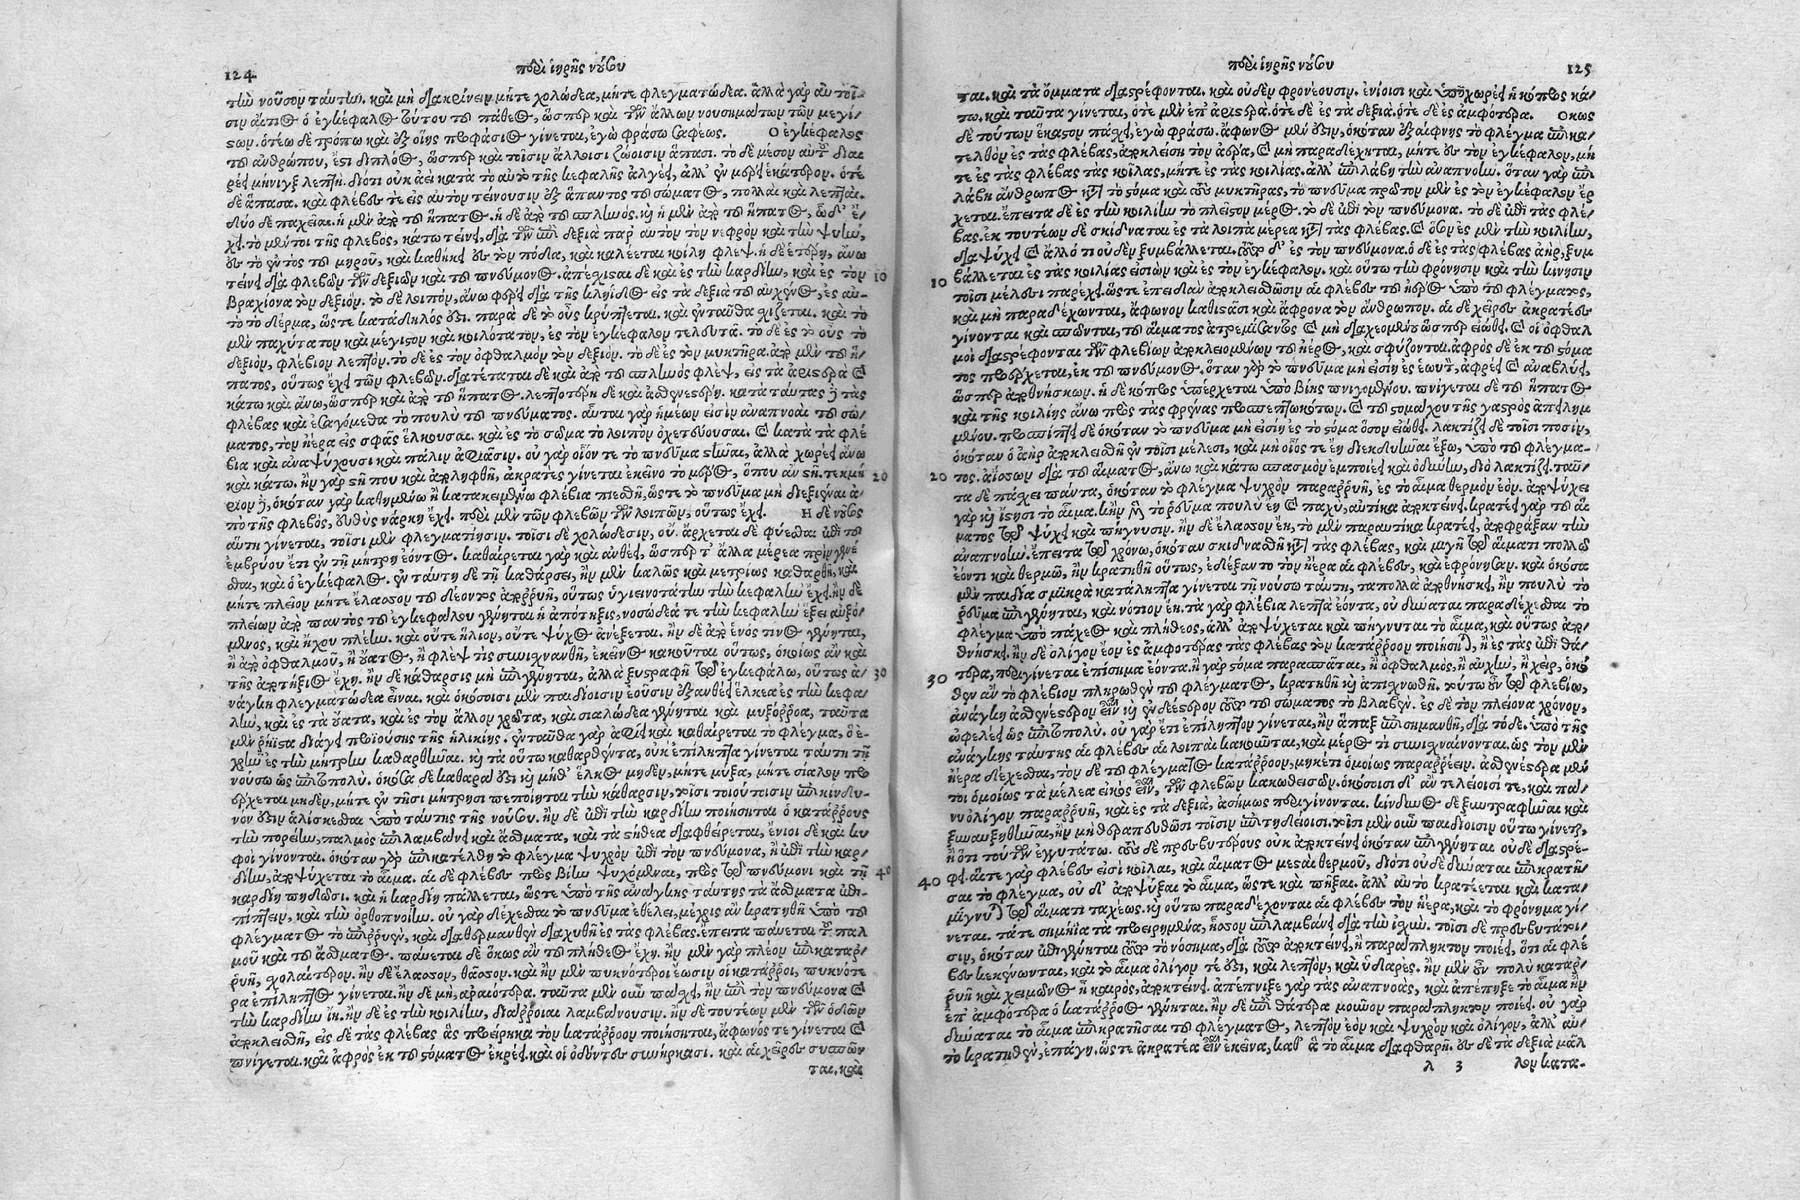 124 περὶ ἱερῆς νούσου
τὴν νοῦσον ταύτην. καὶ μὴ διακρίνειν μήτε χολώδεα, μήτε φλεγματώδεα. ἀλλὰ γὰρ αὐτοῖ-
σιν αἴτιος ὁ ἐγκέφαλος τούτου τοῦ πάθεος, ὥσπερ καὶ τῶν ἄλλων νουσημάτων τῶν μεγί-
στων. ὅτεω δὲ τρόπω καὶ ἐξ οἵης προφάσιος γίνεται, ἐγὼ φράσω σαφέως. Ὁ ἐγκέφαλος
τοῦ ἀνθρώπου, ἔστι διπλόος, ὥσπερ καὶ τοῖσιν ἄλλοισι ζώοισιν ἅπασι. τὸ δὲ μέσον αὐτοῦ διαι-
ρέει μῆνιγξ λεπτή. διότι οὐκ ἀεὶ κατὰ τὸ αὐτὸ τῆς κεφαλῆς ἀλγέει, ἀλλ' ἐν μέρει ἑκάτερον. ὁτὲ
δὲ ἅπασα. καὶ φλέβες τε εἰς αὐτὸν τείνουσιν ἐξ ἅπαντος τοῦ σώματος, πολλαὶ καὶ λεπταί.
δύο δὲ παχεῖαι. ἡ μὲν ἀπὸ τοῦ ἥπατος. ἡ δὲ ἀπὸ τοῦ σπληνός. καὶ ἡ μὲν ἀπὸ τοῦ ἥπατος, ὧδ' ἔ-
χει. τὸ μέν τοι τῆς φλεβὸς, κάτω τείνει, διὰ τῶν ἐπὶ δεξιὰ παρ' αὐτὸν τὸν νεφρὸν καὶ τὴν ψυὴν,
ἐς τὸ ἐντὸς τοῦ μηροῦ, καὶ καθήκει ἐς τὸν πόδα, καὶ καλέεται κοίλη φλέψ. ἡ δὲ ἑτέρη, ἄνω
τείνει διὰ φλεβῶν τῶν δεξιῶν καὶ τοῦ πνεύμονος. ἀπέσχισται δὲ καὶ ἐς τὴν καρδίην, καὶ ἐς τὸν 10
βραχίονα τὸν δεξιόν. τὸ δὲ λοιπὸν, ἄνω φέρει διὰ τῆς κληΐδος εἰς τὰ δεξιὰ τοῦ αὐχένος, ἐς αὐ-
τὸ τὸ δέρμα, ὥστε κατάδηλός ἐστι. παρὰ δὲ τὸ οὖς κρύπτεται. καὶ ἐνταῦθα σχίζεται. καὶ τὸ
μὲν παχύτατον καὶ μέγιστον καὶ κοιλότατον, ἐς τὸν ἐγκέφαλον τελευτᾶ. τὸ δὲ ἐς τὸ οὖς τὸ
δεξιὸν, φλέβιον λεπτόν. τὸ δὲ ἐς τὸν ὀφθαλμὸν τὸν δεξιόν. τὸ δὲ ἐς τὸν μυκτῆρα. ἀπὸ μὲν τοῦ ἥ-
πατος, οὕτως ἔχει τῶν φλεβῶν. διατέταται δὲ καὶ ἀπὸ τοῦ σπληνὸς φλὲψ, εἰς τὰ ἀριστερὰ καὶ
κάτω καὶ ἄνω, ὥσπερ καὶ ἀπὸ τοῦ ἥπατος. λεπτοτέρη δὲ καὶ ἀσθενεστέρη. κατὰ ταύτας δὲ τὰς
φλέβας καὶ ἐσαγόμεθα τὸ πουλὺ τοῦ πνεύματος. αὗται γὰρ ἡμέων εἰσὶν ἀναπνοαὶ τοῦ σώ-
ματος, τὸν ἠέρα εἰς σφᾶς ἕλκουσαι. καὶ ἐς τὸ σῶμα τὸ λοιπὸν ὀχετεύουσαι. καὶ κατὰ τὰ φλέ
βια καὶ ἀναψύχουσι καὶ πάλιν ἀφιᾶσιν. οὐ γὰρ οἷόν τε τὸ πνεῦμα στῆναι, ἀλλὰ χωρέει ἄνω
καὶ κάτω. ἢν γὰρ στῆ που καὶ ἀποληφθῆ, ἀκρατὲς γίνεται ἐκεῖνο τὸ μέρος, ὅπου ἂν στῆ. τεκμή 20
ριον δὲ, ὁκόταν γὰρ καθημένω ἢ κατακειμένω φλέβια πιεσθῆ, ὥστε τὸ πνεῦμα μὴ διεξιέναι ἀ-
πὸ τῆς φλεβὸς, εὐθὺς νάρκη ἔχει. περὶ μὲν τῶν φλεβῶν τῶν λοιπῶν, οὕτως ἔχει. Ἡ δὲ νοῦσος
αὕτη γίνεται, τοῖσι μὲν φλεγματίησιν. τοῖσι δὲ χολώδεσιν, οὔ. ἄρχεται δὲ φύεσθαι ἐπὶ τοῦ
ἐμβρύου ἔτι ἐν τῆ μήτρη ἐόντος. καθαίρεται γὰρ καὶ ἀνθέει, ὥσπερ τ' ἄλλα μέρεα πρὶν γενέ
σθαι, καὶ ὁ ἐγκέφαλος. ἐν ταύτη δὲ τῆ καθάρσει, ἢν μὲν καλῶς καὶ μετρίως καθαρθῆ, καὶ
μήτε πλεῖον μήτε ἔλασσον τοῦ δέοντος ἀποῤῥυῆ, οὕτως ὑγιεινοτάτην τὴν κεφαλὴν ἔχει. ἢν δὲ
πλείων ἀπὸ παντὸς τοῦ ἐγκεφάλου γένηται ἡ ἀπότηξις, νοσώδεά τε τὴν κεφαλὴν ἕξει αὐξό-
μενος, καὶ ἤχου πλέην. καὶ οὔτε ἥλιον, οὔτε ψύχος ἀνέξεται. ἢν δὲ ἀπὸ ἑνός τινος γένηται,
ἢ ἀπ' ὀφθαλμοῦ, ἢ οὔατος, ἢ φλέψ τις συνισχνανθῆ, ἐκεῖνο κακοῦται οὕτως, ὁκοίως ἂν καὶ
τῆς ἀποτήξιος ἔχη. ἢν δὲ κάθαρσις μὴ ἐπιγένηται, ἀλλὰ ξυστραφῆ τῶ ἐγκεφάλω, οὕτως ἀ- 30
νάγκη φλεγματώδεα εἶναι. καὶ ὁκόσοισι μὲν παιδίοισιν ἐοῦσιν ἐξανθέει ἕλκεα ἐς τὴν κεφα-
λὴν, καὶ ἐς τὰ οὔατα, καὶ ἐς τὸν ἄλλον χρῶτα, καὶ σιαλώδεα γένηται καὶ μυξόῤῥοα, ταῦτα
μὲν ῥήϊστα διάγει προϊούσης τῆς ἡλικίης. ἐνταῦθα γὰρ ἀφιεῖ καὶ καθαίρεται τὸ φλέγμα, ὃ ἐ-
χρῆν ἐς τὴν μήτρην καθαρθῆναι. καὶ τὰ οὕτω καθαρθέντα, οὐκ ἐπίληπτα γίνεται ταύτη τῆ
νούσω ὡς ἐπιτοπολύ. ὁκόσα δὲ καθαρά ἐστι καὶ μήθ' ἕλκος μηδὲν, μήτε μύξα, μήτε σίαλον προ
έρχεται μηδὲν, μήτε ἐν τῆσι μήτρησι πεποίηται τὴν κάθαρσιν, τοῖσι τοιούτοισιν ἐπικίνδυ-
νόν ἐστιν ἁλίσκεσθαι ὑπὸ ταύτης τῆς νούσου. ἢν δὲ ἐπὶ τὴν καρδίην ποιήσηται ὁ κατάῤῥους
τὴν πορείην, παλμὸς ἐπιλαμβάνει καὶ ἄσθματα, καὶ τὰ στήθεα διαφθείρεται, ἔνιοι δὲ καὶ κυ
φοὶ γίνονται. ὁκόταν γὰρ ἐπικατέλθη τὸ φλέγμα ψυχρὸν ἐπὶ τὸν πνεύμονα, ἢ ἐπὶ τὴν καρ-
δίην, ἀποψύχεται τὸ αἷμα. αἱ δὲ φλέβες πρὸς βίην ψυχόμεναι, πρὸς τῶ πνεύμονι καὶ τῆ 40
καρδίη πηδῶσι. καὶ ἡ καρδίη πάλλεται, ὥστε ὑπὸ τῆς ἀνάγκης ταύτης τὰ ἄσθματα ἐπι-
πίπτειν, καὶ τὴν ὀρθοπνοίην. οὐ γὰρ δέχεσθαι τὸ πνεῦμα ἐθέλει, μέχρις ἂν κρατηθῆ ὑπὸ τοῦ
φλέγματος τὸ ἐπιῤῥυὲν, καὶ διαθερμανθὲν διαχυθῆ ἐς τὰς φλέβας. ἔπειτα παύεται τοῦ παλ
μοῦ καὶ τοῦ ἄσθματος. παύεται δὲ ὅκως ἂν τοῦ πλήθεος ἔχη. ἢν μὲν γὰρ πλέον ἐπικαταῤ-
ῥυῆ, σχολαίτερον. ἢν δὲ ἔλασσον, θᾶσσον. καὶ ἢν μὲν πυκνότεροι ἔωσιν οἱ κατάῤῥοι, πυκνότε
ρα ἐπίληπτος γίνεται. ἢν δὲ μὴ, ἀραιότερα. ταῦτα μὲν οὖν πάσχει, ἢν ἐπὶ τὸν πνεύμονα καὶ
τὴν καρδίην ἴη. ἢν δὲ ἐς τὴν κοιλίην, διάῤῥοιαι λαμβάνουσιν. ἢν δὲ τουτέων μὲν τῶν ὁδῶν
ἀποκλεισθῆ, εἰς δὲ τὰς φλέβας ἃς προείρηκα τὸν κατάῤῥοον ποιήσηται, ἄφωνός τε γίνεται καὶ
πνίγεται. καὶ ἀφρὸς ἐκ τοῦ στόματος ἐκρέει. καὶ οἱ ὀδόντες συνήρκασι. καὶ αἱ χεῖρες συσπῶν
ται. καὶ
περὶ ἱερῆς νούσου 125
ται. καὶ τὰ ὄμματα διαστρέφονται. καὶ οὐδὲν φρονέουσιν. ἐνίοισι καὶ ὑποχωρέει ἡ κόπρος κά-
τω. καὶ ταῦτα γίνεται, ὁτὲ μὲν ἐπ' ἀριστερά. ὁτὲ δὲ ἐς τὰ δεξιά. ὁτὲ δὲ ἐς ἀμφότερα. Ὅκως
δὲ τούτων ἕκαστον πάσχει, ἐγὼ φράσω. ἄφωνος μέν ἐστιν, ὁκόταν ἐξαίφνης τὸ φλέγμα ἐπικα-
τελθὸν ἐς τὰς φλέβας, ἀποκλείση τὸν ἀέρα, καὶ μὴ παραδέχηται, μήτε ἐς τὸν ἐγκέφαλον, μή
τε ἐς τὰς φλέβας τὰς κοίλας, μήτε ἐς τὰς κοιλίας. ἀλλ' ἐπιλάβη τὴν ἀναπνοήν. ὅταν γὰρ ἐπι
λάβη ἄνθρωπος κατὰ τὸ στόμα καὶ τοὺς μυκτῆρας, τὸ πνεῦμα πρῶτον μὲν ἐς τὸν ἐγκέφαλον ἔρ
χεται. ἔπειτα δὲ ἐς τὴν κοιλίην τὸ πλεῖστον μέρος. τὸ δὲ ἐπὶ τὸν πνεύμονα. τὸ δὲ ἐπὶ τὰς φλέ-
βας. ἐκ τουτέων δὲ σκίδναται ἐς τὰ λοιπὰ μέρεα κατὰ τὰς φλέβας. καὶ ὅσον ἐς μὲν τὴν κοιλίην,
διαψύχει καὶ ἄλλό τι οὐδὲν ξυμβάλλεται. τοῦτο δ' ἐς τὸν πνεύμονα. ὁ δὲ ἐς τὰς φλέβας ἀὴρ, ξυμ
10 βάλλεται ἐς τὰς κοιλίας ἐσιὼν καὶ ἐς τὸν ἐγκέφαλον. καὶ οὕτω τὴν φρόνησιν καὶ τὴν κίνησιν
τοῖσι μέλεσι παρέχει. ὥστε ἐπειδὰν ἀποκλεισθῶσιν αἱ φλέβες τοῦ ἠέρος ὑπὸ τοῦ φλέγματος,
καὶ μὴ παραδέχωνται, ἄφωνον καθιστᾶσι καὶ ἄφρονα τὸν ἄνθρωπον. αἱ δὲ χεῖρες ἀκρατέες
γίνονται καὶ σπῶνται, τοῦ αἵματος ἀτρεμίζαντος καὶ μὴ διαχεομένου ὥσπερ εἰώθει. καὶ οἱ ὀφθαλ
μοὶ διαστρέφονται τῶν φλεβίων ἀποκλειομένων τοῦ ἠέρος, καὶ σφύζονται. ἀφρὸς δὲ ἐκ τοῦ στόμα
τος προέρχεται, ἐκ τοῦ πνεύμονος. ὅταν γὰρ τὸ πνεῦμα μὴ εἰσίη ἐς ἑωυτὸν, ἀφρέει καὶ ἀναβλύει,
ὥσπερ ἀποθνήσκων. ἡ δὲ κόπρος ὑπέρχεται ὑπὸ βίης πνιγομένου. πνίγεται δὲ τοῦ ἥπατος
καὶ τῆς κοιλίης ἄνω πρὸς τὰς φρένας προσπεπτωκότων. καὶ τοῦ στομάχου τῆς γαστρὸς ἀπειλημ
μένου. προσπίπτει δὲ ὁκόταν τὸ πνεῦμα μὴ εἰσίη ἐς τὸ στόμα ὅσον εἰώθει. λακτίζει δὲ τοῖσι ποσὶν,
ὁκόταν ὁ ἀὴρ ἀποκλεισθῆ ἐν τοῖσι μέλεσι, καὶ μὴ οἷός τε ἔη διεκδῦναι ἔξω, ὑπὸ τοῦ φλέγμα-
20 τος. ἀΐσσων διὰ τοῦ αἵματος, ἄνω καὶ κάτω σπασμὸν ἐμποιέει καὶ ὀδύνην, διὸ λακτίζει. ταῦ-
τα δὲ πάσχει πάντα, ὁκόταν τὸ φλέγμα ψυχρὸν παραῤῥυῆ, ἐς τὸ αἷμα θερμὸν ἐόν. ἀποψύχει
γὰρ καὶ ἵστησι τὸ αἷμα. κἢν μὲν τὸ ῥεῦμα πουλὺ ἔη καὶ παχὺ, αὐτίκα ἀποκτείνει. κρατέει γὰρ τοῦ αἵ
ματος τῶ ψύχει καὶ πήγνυσιν. ἢν δὲ ἔλασσον ἔη, τὸ μὲν παραυτίκα κρατέει, ἀποφράξαν τὴν
ἀναπνοήν. ἔπειτα τῶ χρόνω, ὁκόταν σκιδνασθῆ κατὰ τὰς φλέβας, καὶ μιγῆ τῶ αἵματι πολλῶ
ἐόντι καὶ θερμῶ, ἢν κρατηθῆ οὕτως, ἐδέξαντο τὸν ἠέρα αἱ φλέβες, καὶ ἐφρόνησαν. καὶ ὁκόσα
μὲν παιδία σμικρὰ κατάληπτα γίνεται τῆ νούσω ταύτη, τὰ πολλὰ ἀποθνήσκει. ἢν πουλὺ τὸ
ῥεῦμα ἐπιγένηται, καὶ νότιον ἔη. τὰ γὰρ φλέβια λεπτὰ ἐόντα, οὐ δύναται παραδέχεσθαι τὸ
φλέγμα ὑπὸ πάχεος καὶ πλήθεος, ἀλλ' ἀποψύχεται καὶ πήγνυται τὸ αἷμα, καὶ οὕτως ἀπο-
θνήσκει. ἢν δὲ ὀλίγον ἐὸν ἐς ἀμφοτέρας τὰς φλέβας τὸν κατάῤῥοον ποιήσηται, ἢ ἐς τὰς ἐπὶ θά-
30 τερα, περιγίνεται ἐπίσημα ἐόντα. ἢ γὰρ στόμα παρασπᾶται, ἢ ὀφθαλμὸς, ἢ αὐχὴν, ἢ χεὶρ, ὁκό
θεν ἂν τὸ φλέβιον πληρωθὲν τοῦ φλέγματος, κρατηθῆ καὶ ἀπισχνωθῆ. τούτω οὖν τῶ φλεβίω,
ἀνάγκη ἀσθενέστερον εἶναι καὶ ἐνδεέστερον τοῦτο τοῦ σώματος τὸ βλαβέν. ἐς δὲ τὸν πλείονα χρόνον,
ὠφελέει ὡς ἐπιτοπολύ. οὐ γὰρ ἔτι ἐπίληπτον γίνεται, ἢν ἅπαξ ἐπισημανθῆ, διὰ τόδε. ὑπὸ τῆς
ἀνάγκης ταύτης αἱ φλέβες αἱ λοιπαὶ κακοῦνται, καὶ μέρος τὶ συνισχναίνονται. ὡς τὸν μὲν
ἠέρα δέχεσθαι, τὸν δὲ τοῦ φλέγματος κατάῤῥοον, μηκέτι ὁμοίως παραῤῥέειν. ἀσθενέστερα μέν
τοι ὁμοίως τὰ μέλεα εἰκὸς εἶναι, τῶν φλεβῶν κακωθεισῶν. ὁκόσοισι δ' ἂν τελείοισί τε, καὶ πά-
νυ ὀλίγον παραῤῥυῆ, καὶ ἐς τὰ δεξιὰ, ἀσήμως περιγίνονται. κίνδυνος δὲ ξυντραφῆναι καὶ
ξυναυξηθῆναι, ἢν μὴ θεραπευθῶσι τοῖσιν ἐπιτηδείοισι. τοῖσι μὲν οὖν παιδίοισιν οὕτω γίνεται,
ἢ ὅτι τούτων ἐγγυτάτω. τοὺς δὲ πρεσβυτέρους οὐκ ἀποκτείνει ὁκόταν ἐπιγένηται οὐδὲ διαστρέ-
40 φει. αἵ τε γὰρ φλέβες εἰσὶ κοῖλαι, καὶ αἵματος μεσταὶ θερμοῦ, διότι οὐδὲ δύναται ἐπικρατῆ-
σαι τὸ φλέγμα, οὐδ' ἀποψύξαι τὸ αἷμα, ὥστε καὶ πῆξαι. ἀλλ' αὐτὸ κρατέεται καὶ κατα-
μίγνυται τῶ αἵματι ταχέως. καὶ οὕτω παραδέχονται αἱ φλέβες τὸν ἠέρα, καὶ τὸ φρόνημα γί-
νεται. τά τε σημήϊα τὰ προειρημένα, ἧσσον ἐπιλαμβάνει διὰ τὴν ἰσχύν. τοῖσι δὲ πρεσβυτάτοι-
σιν, ὁκόταν ἐπιγένηται τοῦτο τὸ νόσημα, διὰ τοῦτο ἀποκτείνει, ἢ παράπληκτον ποιέει, ὅτι αἱ φλέ
βες κεκένωνται, καὶ τὸ αἷμα ὀλίγον τέ ἐστι, καὶ λεπτὸν, καὶ ὑδαρές. ἢν μὲν οὖν πολὺ καταῤ-
ῥυῆ καὶ χειμῶνος ἦ καιρὸς, ἀποκτείνει. ἀπέπνιξε γὰρ τὰς ἀναπνοὰς, καὶ ἀπέπηξε τὸ αἷμα ἢν
ἐπ' ἀμφότερα ὁ κατάῤῥοος γένηται. ἢν δὲ ἐπὶ θάτερα μοῦνον παράπληκτον ποιέει. οὐ γὰρ
δύναται τὸ αἷμα ἐπικρατῆσαι τοῦ φλέγματος, λεπτὸν ἐὸν καὶ ψυχρὸν καὶ ὀλίγον, ἀλλ' αὐ-
τὸ κρατηθὲν, ἐπάγη. ὥστε ἀκρατέα εἶναι ἐκεῖνα, καθ' ἃ τὸ αἷμα διαφθαρῆ. ἐς δὲ τὰ δεξιὰ μᾶλ
λ 3 λον κατα-